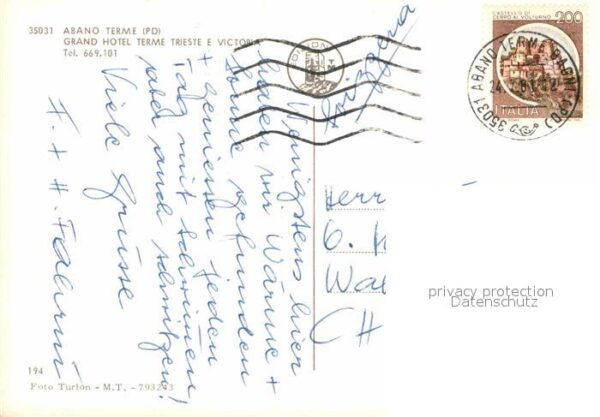 35031 ABANO TERME (PD)
GRAND HOTEL TERME TRIESTE E VICTORIA
Tel. 669.101
CASTELLO DI
CERRO AL VOLTURNO 200
ITALIA
35031 ABANO TERME BAGNI (PD)
Wenigstens hier
haben wir Wärme +
Sonne gefunden
+ geniessen jeden
Tag mit schwimmen
und auch schwitzen!
Viele Grüsse
F. + H.
Herr
G.
CH
privacy protection
Datenschutz
194
Foto Turlon - M.T. - 793243